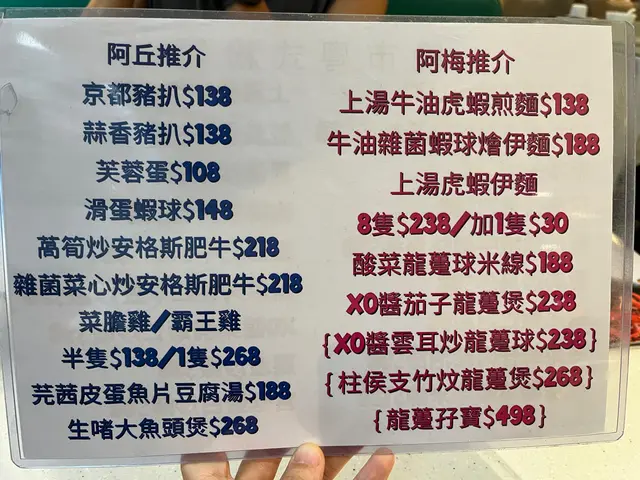 阿丘推介
京都豬扒$138
蒜香豬扒$138
芙蓉蛋$108
滑蛋蝦球$148
萵筍炒安格斯肥牛$218
雜菌菜心炒安格斯肥牛$218
菜膽雞/霸王雞
半隻$138/1隻$268
芫茜皮蛋魚片豆腐湯$188
生啫大魚頭煲$268
阿梅推介
上湯牛油虎蝦煎麵$138
牛油雜菌蝦球燴伊麵$188
上湯虎蝦伊麵
8隻$238/加1隻$30
酸菜龍躉球米線$188
XO醬茄子龍躉煲$238
{XO醬雲耳炒龍躉球$238}
{柱侯支竹炆龍躉煲$268}
{龍躉孖寶$498}